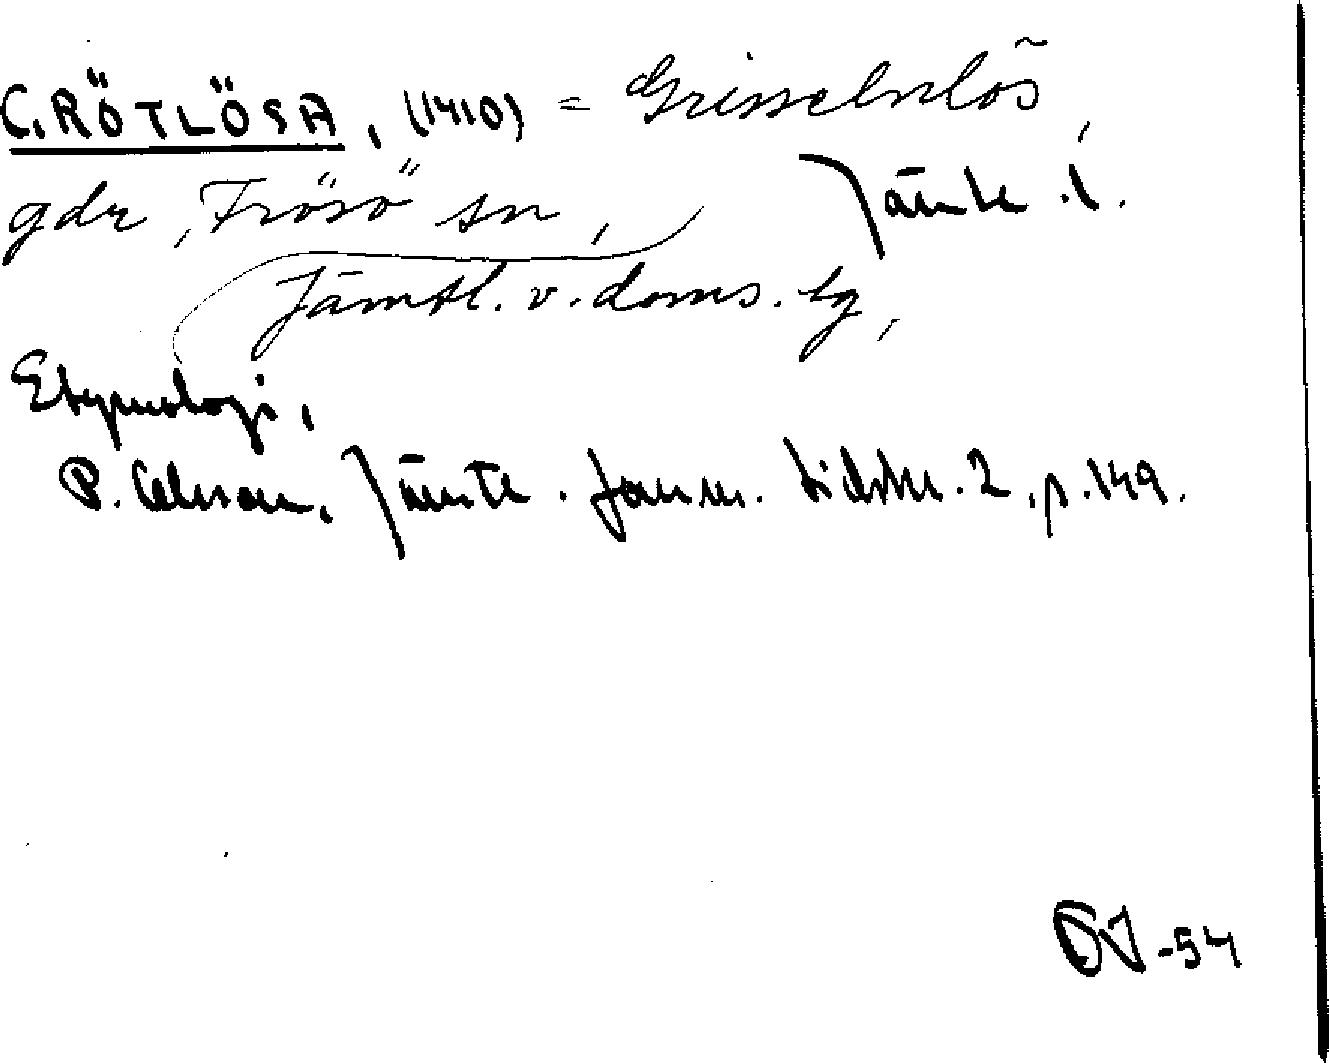 GRÖTLÖSA, (1410) = Grisselrlös,
gdr, Frösö sn, Jämtl.
Jämtl. v. doms. tg,
Etymologi,
P. Olsson, Jämtl. fornm. tidskr. 2, p. 149.
-54